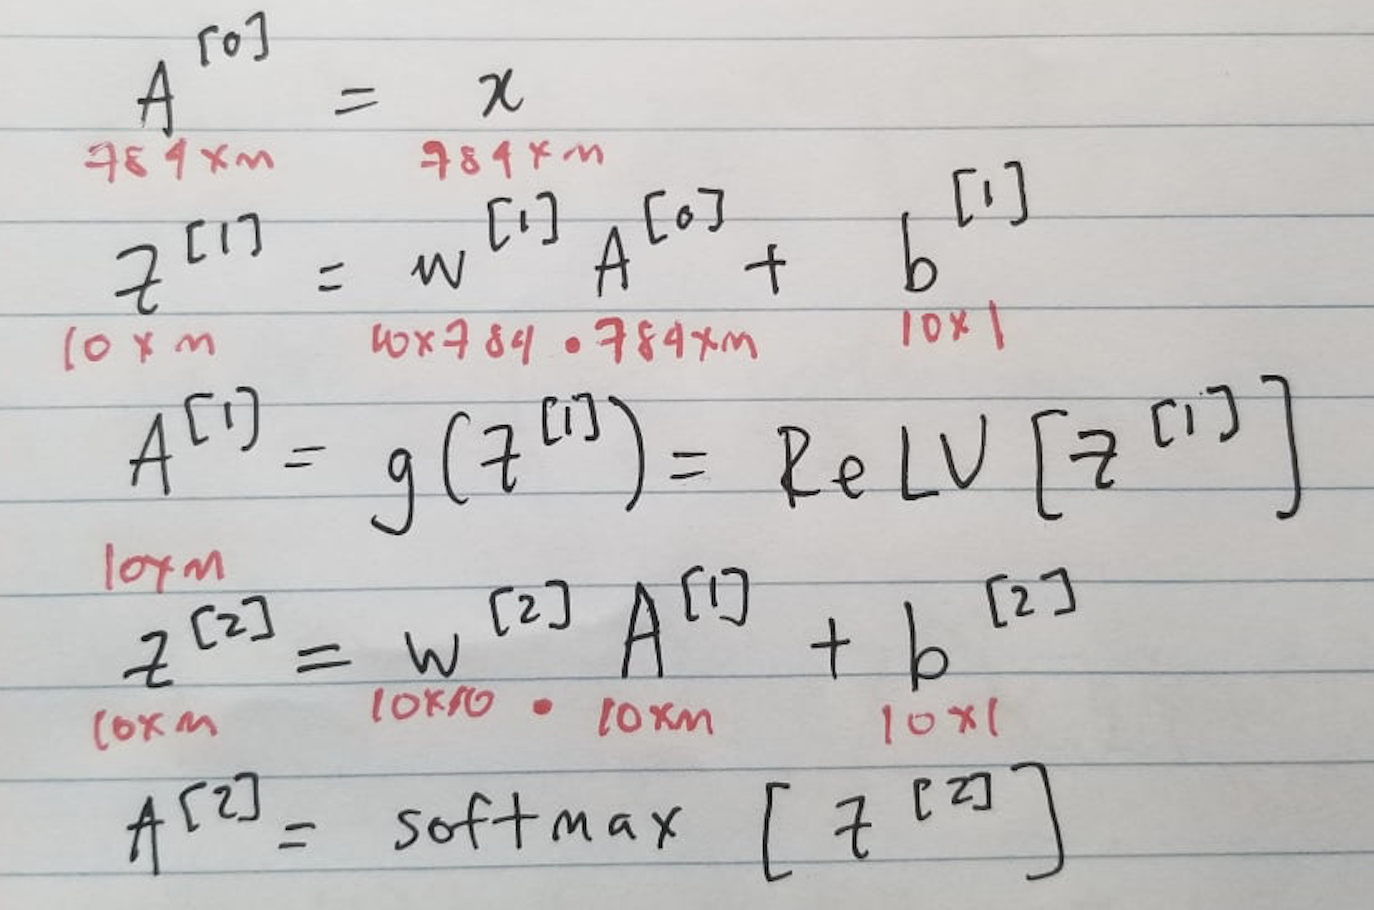 A^[0] = x
784 x m 784 x m
Z^[1] = w^[1] A^[0] + b^[1]
10 x m 10x784 • 784xm 10x1
A^[1] = g(Z^[1]) = ReLU [Z^[1]]
10xm
Z^[2] = w^[2] A^[1] + b^[2]
10xm 10x10 • 10xm 10x1
A^[2] = softmax [Z^[2]]